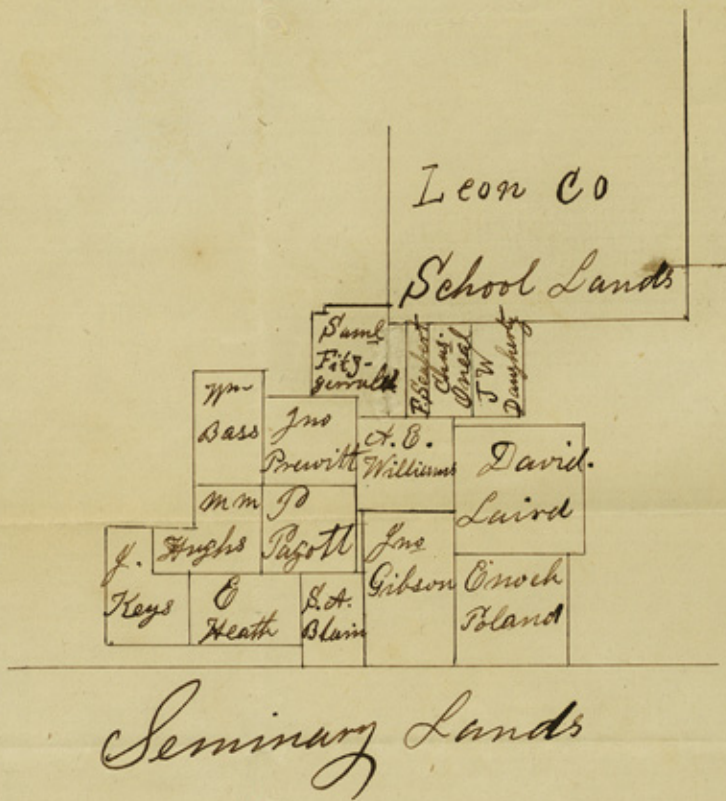 Leon Co
School Lands
Saml
Fitz-
gerrald
P. Seubert
Chas.
Oneal
J W
Daugherty
Wm
Bass
Jno
Prewitt
A. E.
Williams
David.
Laird
M M
Hughs
P
Pagott
Jno
Gibson
Enoch
Poland
J.
Keys
E
Heath
S. A.
Blain
Seminary Lands